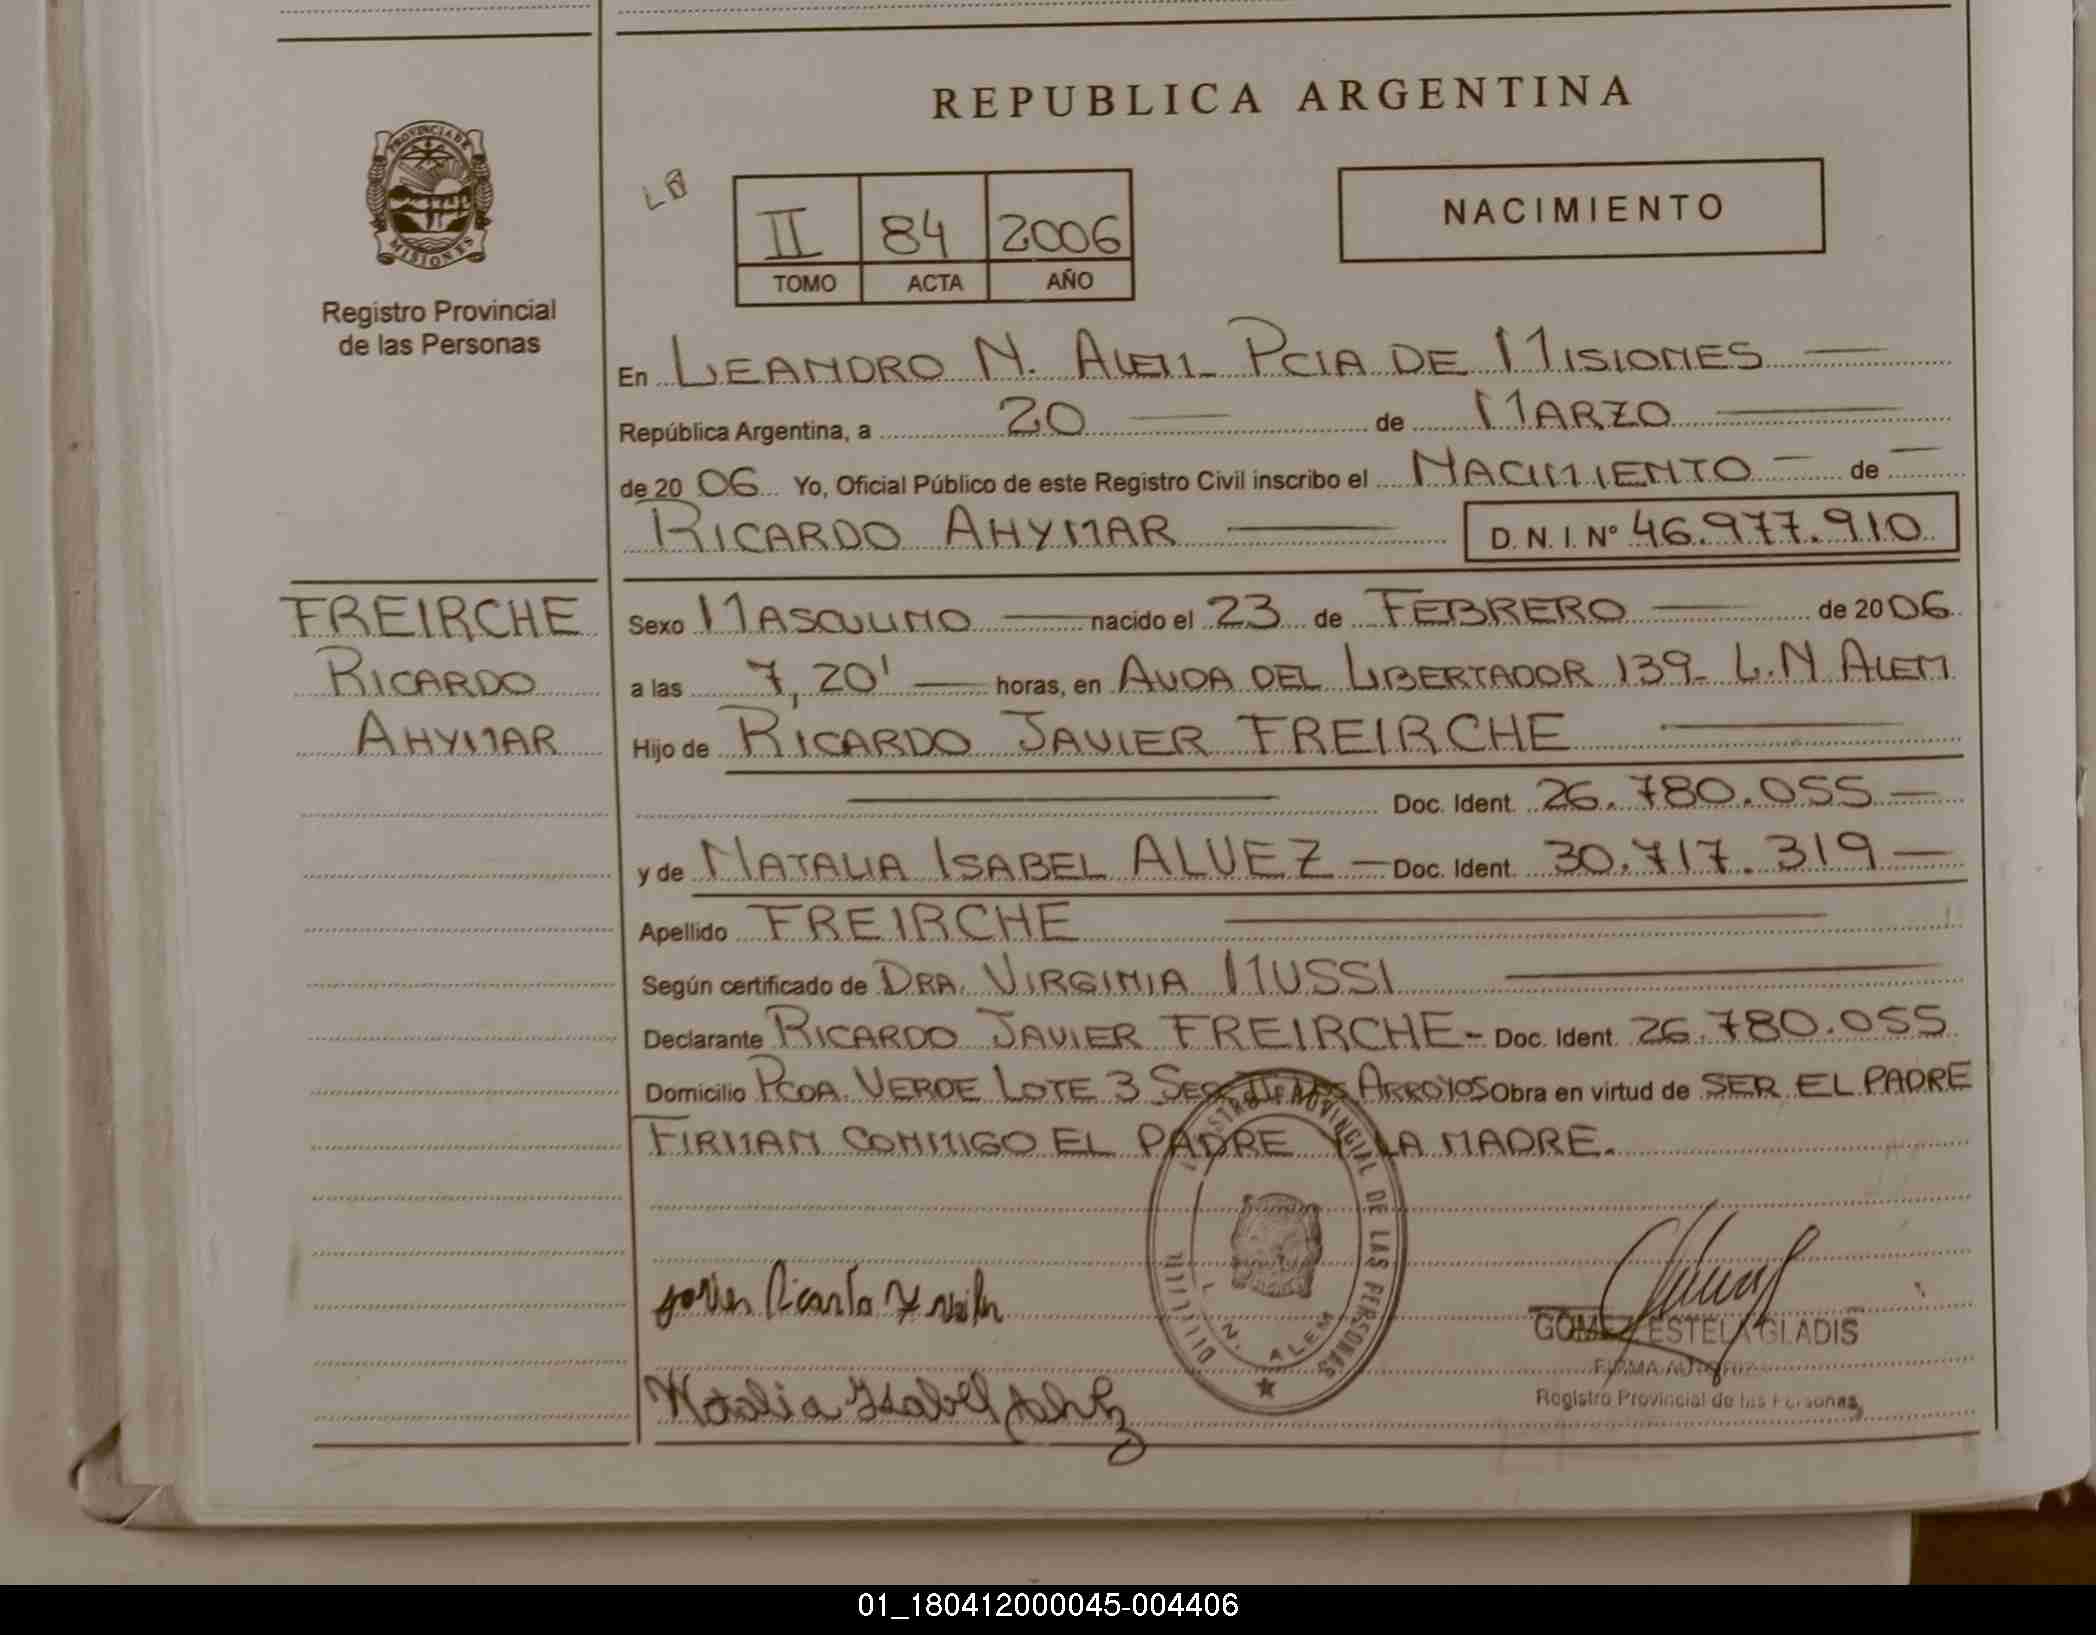 REPUBLICA ARGENTINA
PROVINCIA DE MISIONES
Registro Provincial
de las Personas
LB
II 84 2006
TOMO ACTA AÑO
NACIMIENTO
En LEANDRO N. ALEM - PCIA DE MISIONES
República Argentina, a 20 de MARZO
de 2006 Yo, Oficial Público de este Registro Civil inscribo el NACIMIENTO de
RICARDO AHYMAR D.N.I. Nº 46.977.910
FREIRCHE
RICARDO
AHYMAR
Sexo MASCULINO nacido el 23 de FEBRERO de 2006
a las 7,20' horas, en AVDA DEL LIBERTADOR 139 - L.N ALEM
Hijo de RICARDO JAVIER FREIRCHE
Doc. Ident. 26.780.055
y de NATALIA ISABEL ALVEZ Doc. Ident. 30.717.319
Apellido FREIRCHE
Según certificado de DRA. VIRGINIA MUSSI
Declarante RICARDO JAVIER FREIRCHE - Doc. Ident. 26.780.055
Domicilio PCDA. VERDE LOTE 3 ARROYOS Obra en virtud de SER EL PADRE
FIRMAN CONMIGO EL PADRE Y LA MADRE.
REGISTRO PROVINCIAL DE LAS PERSONAS
L. N. ALEM
Natalia Isabel
GOMEZ ESTELA GLADIS
FIRMA AUTORIZ
Registro Provincial de las Personas
01_180412000045-004406